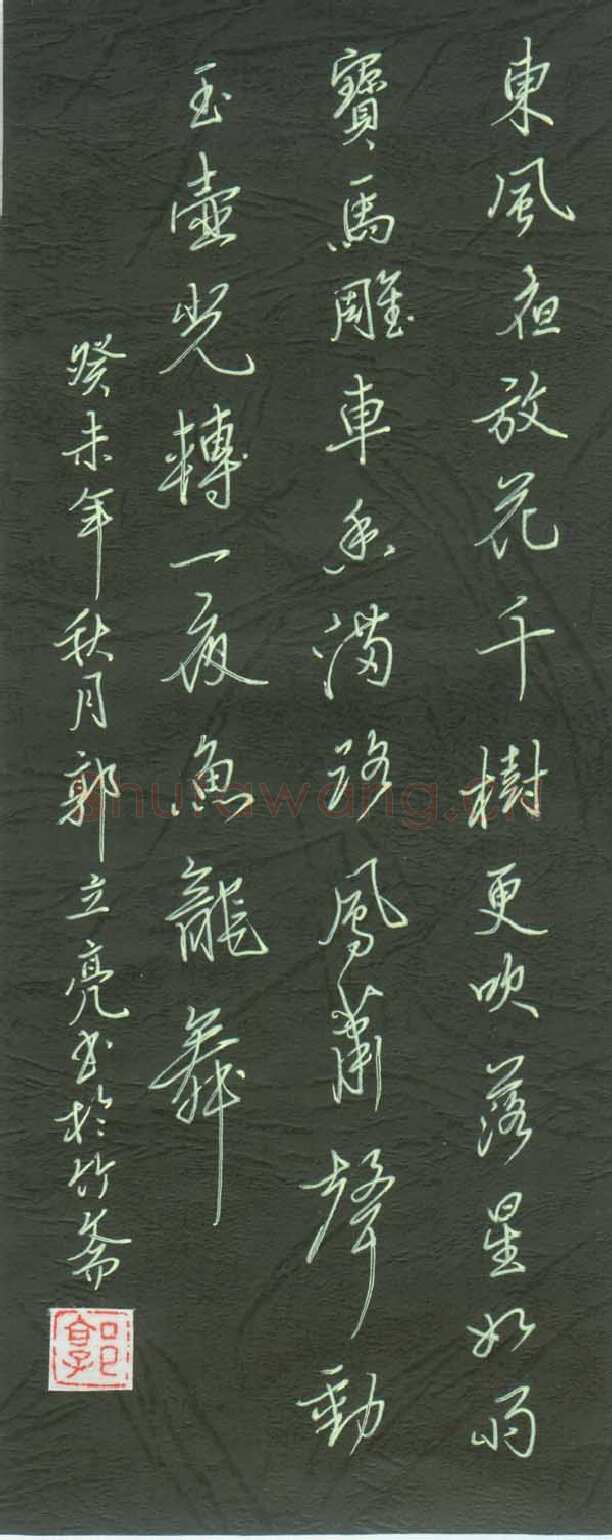 東風夜放花千樹更吹落星如雨
寶馬雕車香满路鳳蕭聲動
玉壺光轉一夜魚龍舞
癸未年秋月郭立亮书於竹斋
郭
shufawang.cn